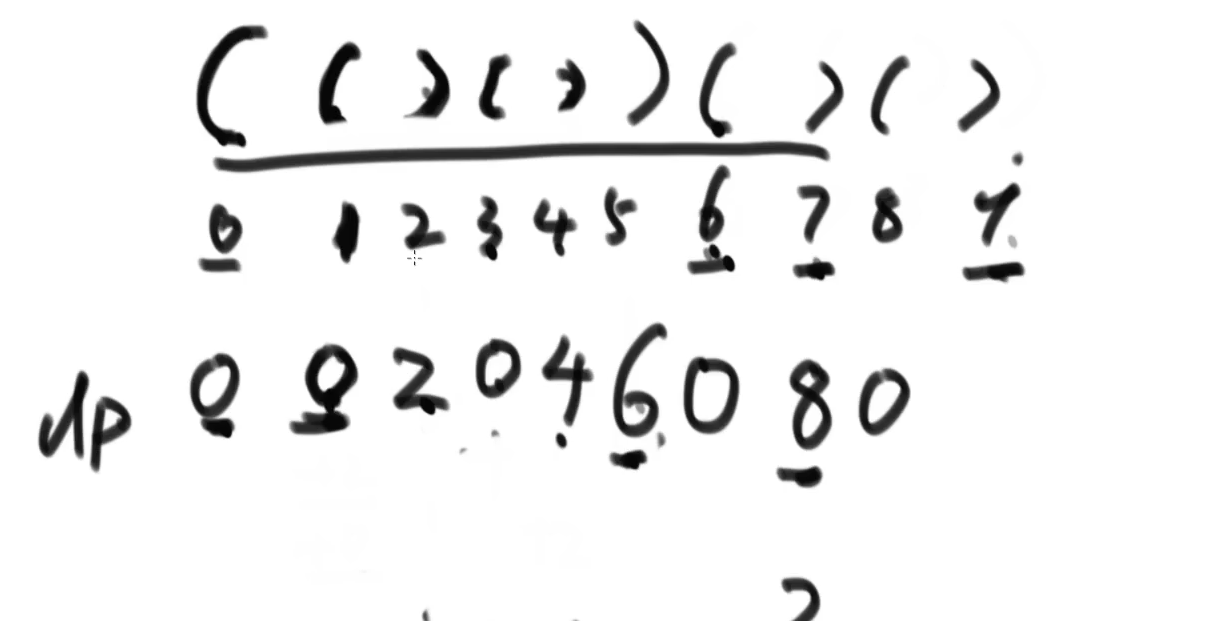 ( ( ) ( ) ) ( ) ( )
0 1 2 3 4 5 6 7 8 9
dp 0 0 2 0 4 6 0 8 0